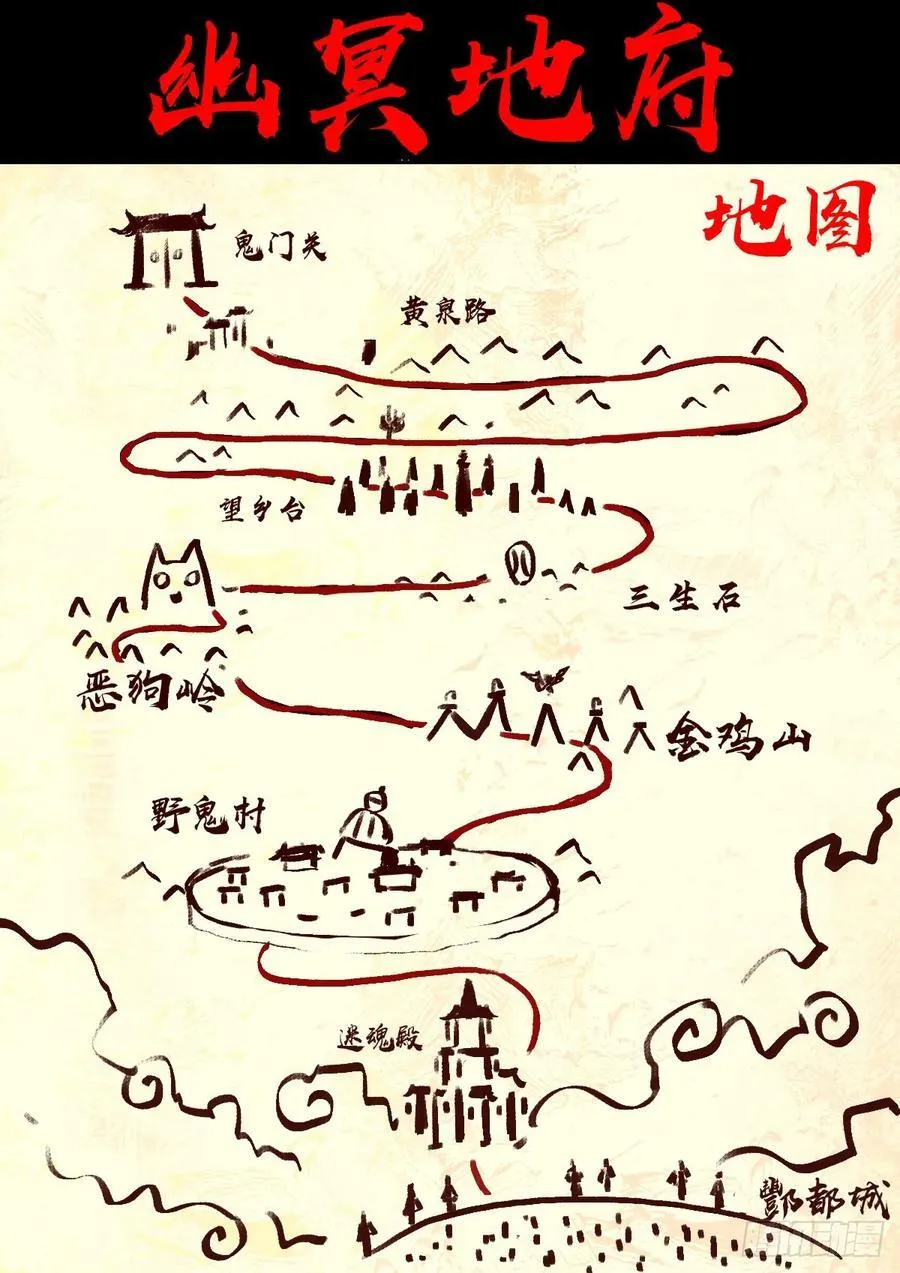 幽冥地府
地图
鬼门关
黄泉路
望乡台
三生石
恶狗岭
金鸡山
野鬼村
迷魂殿
酆都城